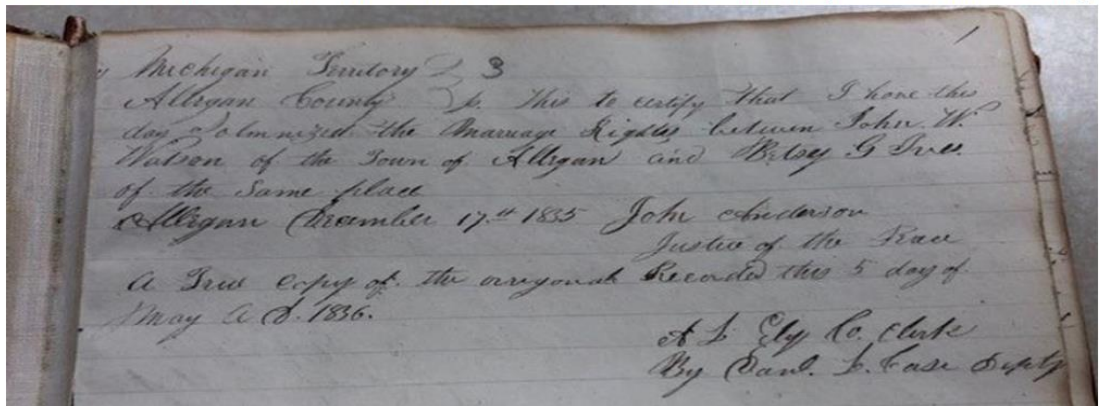 1
Michigan Territory } 3
Allegan County } ss. This to certify that I have this
day Solmnized the Marriage Rights between John W.
Watson of the Town of Allegan and Betsy G Ives
of the Same place
Allegan December 17th 1835 John Anderson
Justice of the Peace
A True Copy of the orrigonal Recorded this 5 day of
May A D. 1836.
A L Ely Co. Clerk
By Danl. L. Case Depty